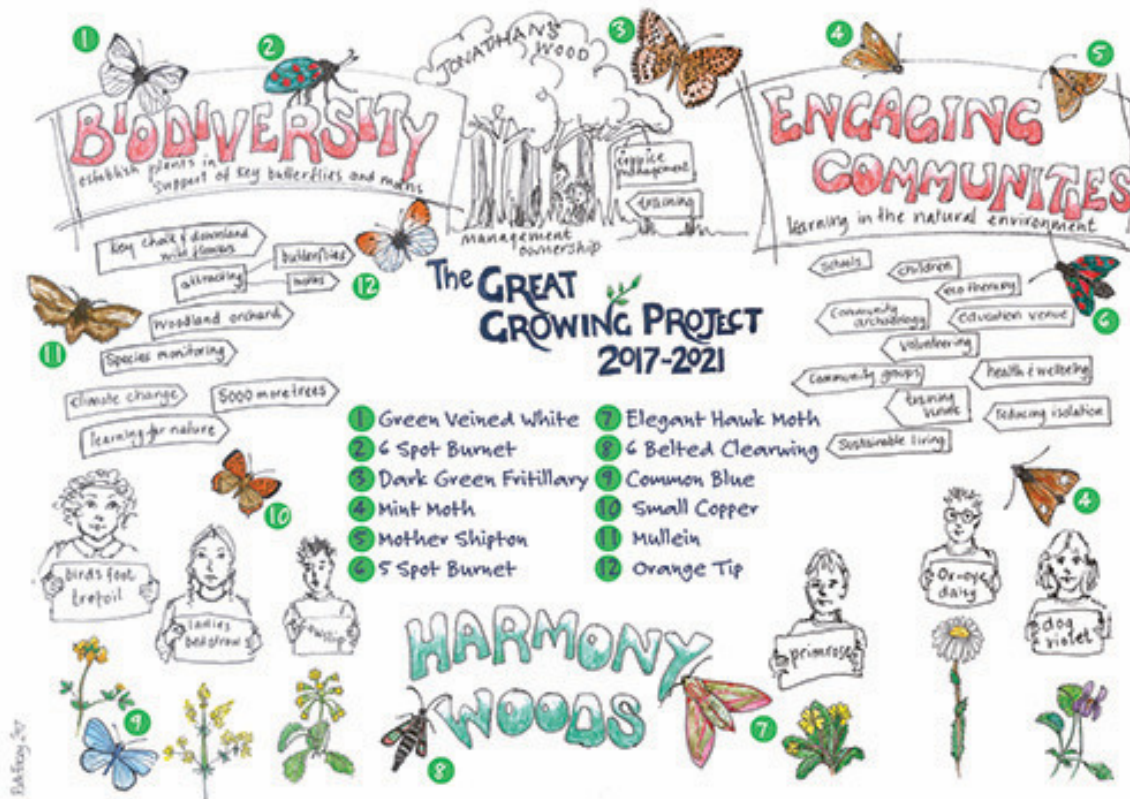 1
2
3
4
5
JONATHAN'S
WOOD
BIODIVERSITY
establish plants in
support of key butterflies and moths
coppice
management
training
management
ownership
ENGAGING
COMMUNITIES
learning in the natural environment
key chalk & downland
wild flowers
attracting
butterflies
moths
12
woodland orchard
11
Species monitoring
climate change
5000 more trees
learning for nature
10
The GREAT
GROWING PROJECT
2017-2021
schools
children
ecotherapy
community
archaeology
education venue
6
volunteering
community groups
health & wellbeing
training
venue
reducing isolation
Sustainable living
4
1 Green Veined White
2 6 Spot Burnet
3 Dark Green Fritillary
4 Mint Moth
5 Mother Shipton
6 5 Spot Burnet
7 Elegant Hawk Moth
8 6 Belted Clearwing
9 Common Blue
10 Small Copper
11 Mullein
12 Orange Tip
birds foot
trefoil
ladies
bedstraw
cowslip
primrose
Ox-eye
daisy
dog
violet
HARMONY
WOODS
9
8
7